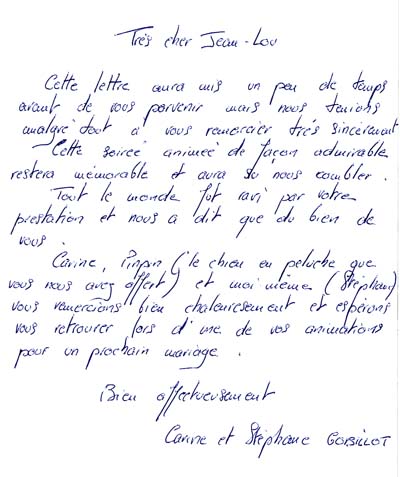 Très cher Jean-Lou
Cette lettre aura mis un peu de temps
avant de vous parvenir mais nous tenions
malgré tout à vous remercier très sincèrement
Cette soireé animeé de façon admirable
restera mémorable et aura su nous combler.
Tout le monde fut ravi par votre
prestation et nous a dit que du bien de
vous.
Carine, Pinpin (le chien en peluche que
vous nous avez offert) et moi même (Stéphane)
vous remercions bien chaleureusement et espérons
vous retrouver lors d'une de vos animations
pour un prochain mariage.
Bien affectueusement
Carine et Stéphane